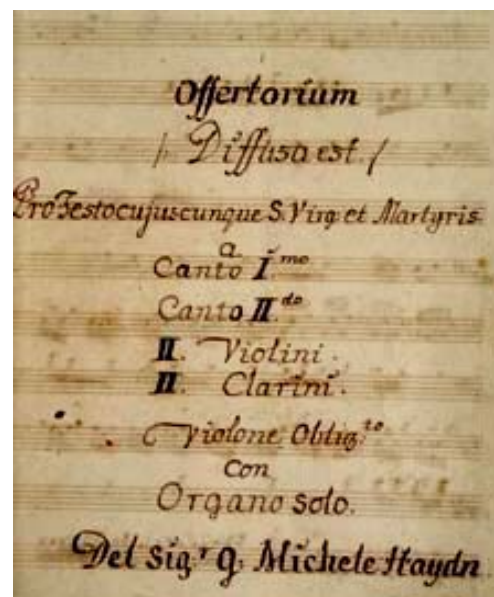 Offertorium
/: Diffusa est. /
Pro Festo cujuscunque S. Virg: et Martyris
a
Canto I.mo
Canto II.do
II. Violini.
II. Clarini.
Violone Oblig.to
con
Organo solo.
Del Sig.r G. Michele Haydn